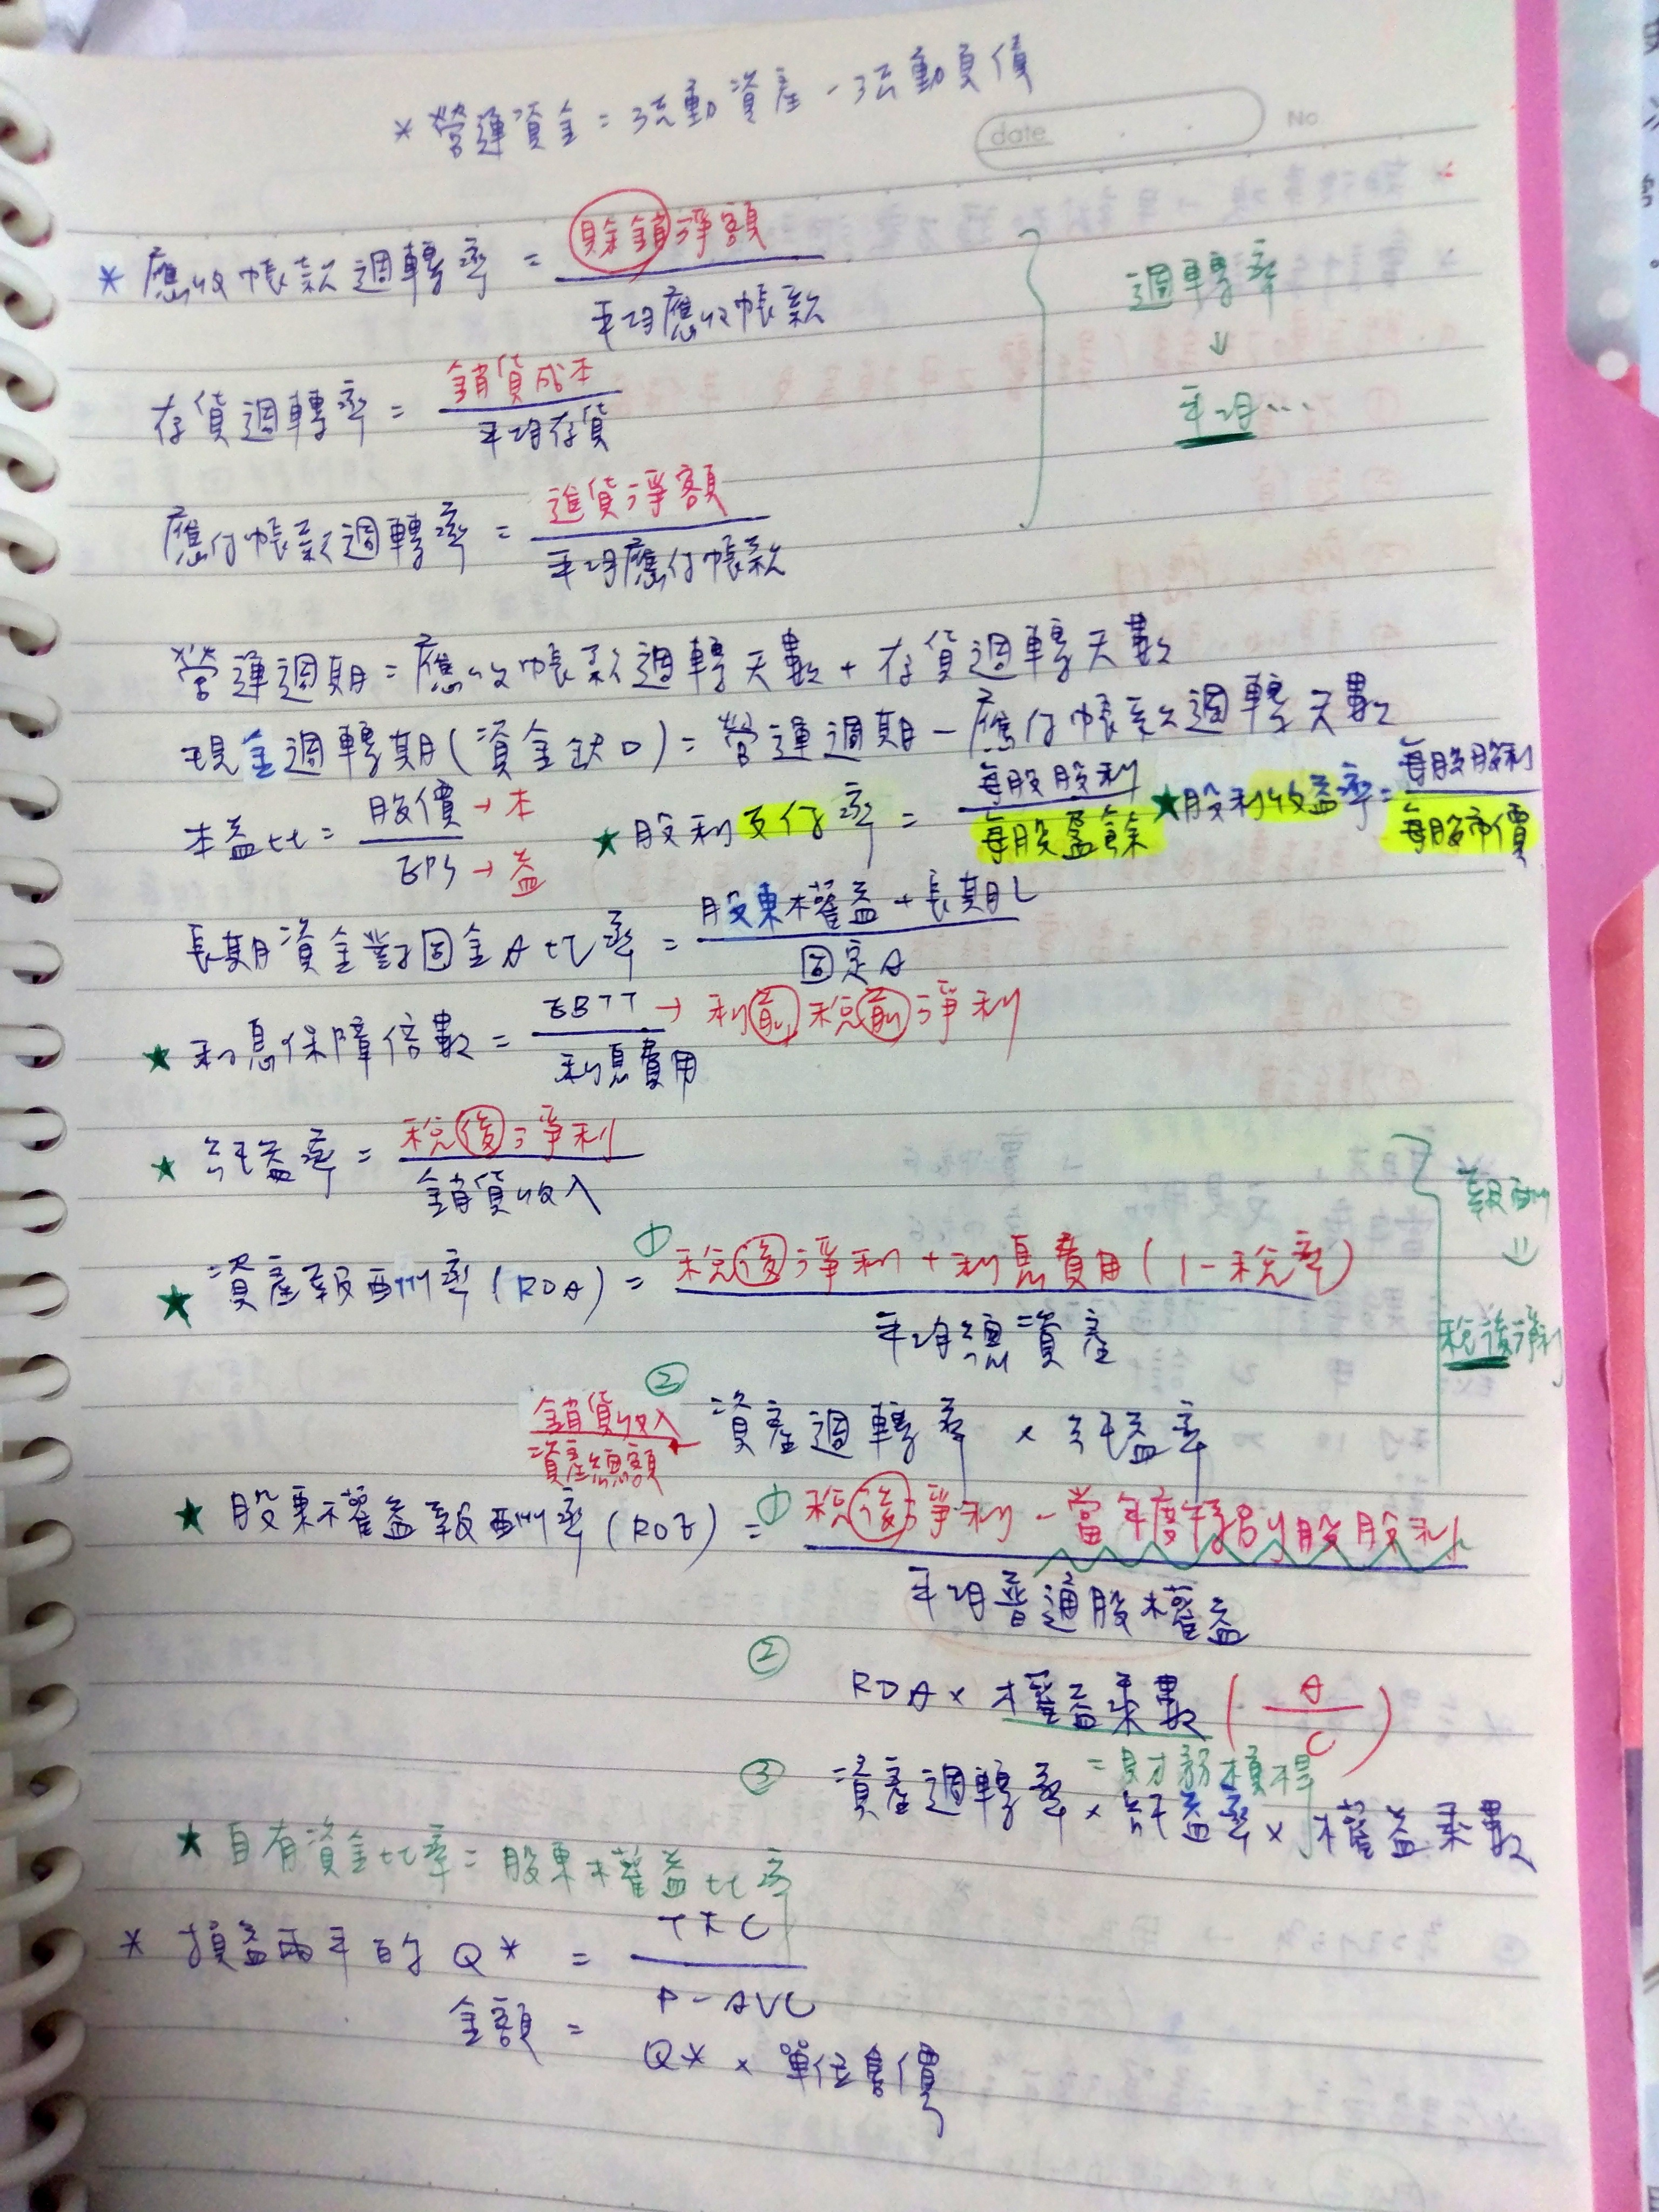 * 營運資金 = 流動資產 - 流動負債
date No
* 應收帳款週轉率 = 賒銷淨額
平均應收帳款
週轉率
↓
平均...
存貨週轉率 = 銷貨成本
平均存貨
應付帳款週轉率 = 進貨淨額
平均應付帳款
營運週期 = 應收帳款週轉天數 + 存貨週轉天數
現金週轉期(資金缺口) = 營運週期 - 應付帳款週轉天數
本益比 = 股價 → 本
EPS → 益
★ 股利支付率 = 每股股利
每股盈餘
★ 股利收益率 = 每股股利
每股市價
長期資金對固定A比率 = 股東權益 + 長期L
固定A
★ 利息保障倍數 = EBIT → 利前稅前淨利
利息費用
★ 純益率 = 稅後淨利
銷貨收入
報酬
⇓
稅後淨利
★ 資產報酬率(ROA) = ① 稅後淨利 + 利息費用(1 - 稅率)
平均總資產
② 資產週轉率 × 純益率
銷貨收入
資產總額
★ 股東權益報酬率(ROE) = ① 稅後淨利 - 當年度特別股股利
平均普通股權益
② ROA × 權益乘數 (A
C)
= 財務槓桿
③ 資產週轉率 × 純益率 × 權益乘數
★ 自有資金比率 = 股東權益比率
* 損益兩平的 Q* = TFC
P - AVC
金額 = Q* × 單位售價